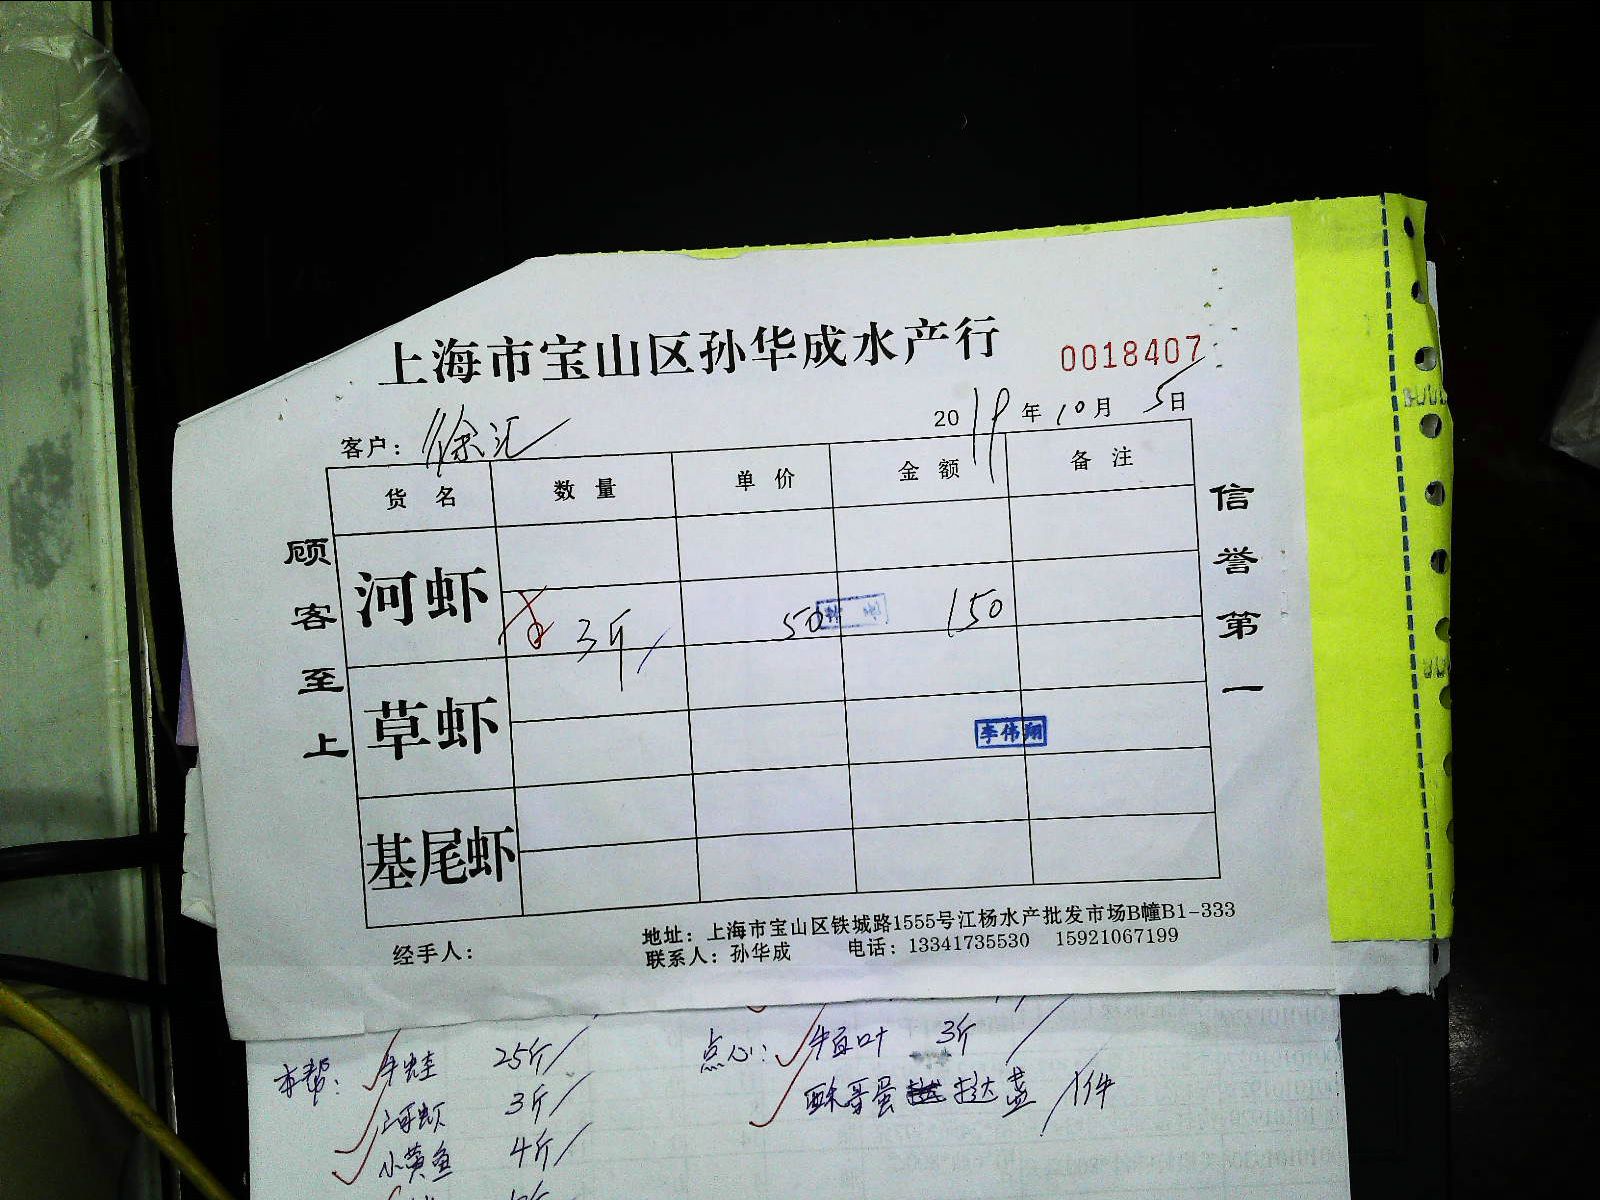 上海市宝山区孙华成水产行
0018407
客户：徐汇
2019年10月5日
货名 数量 单价 金额 备注
河虾 3斤 50 150
草虾
李伟翔
基尾虾
顾客至上
信誉第一
地址：上海市宝山区铁城路1555号江杨水产批发市场B幢B1-333
经手人：
联系人：孙华成 电话：13341735530 15921067199
本帮： 牛蛙 25斤
河虾 3斤
小黄鱼 4斤
点心： 3斤
蛋挞 挞盏 1件